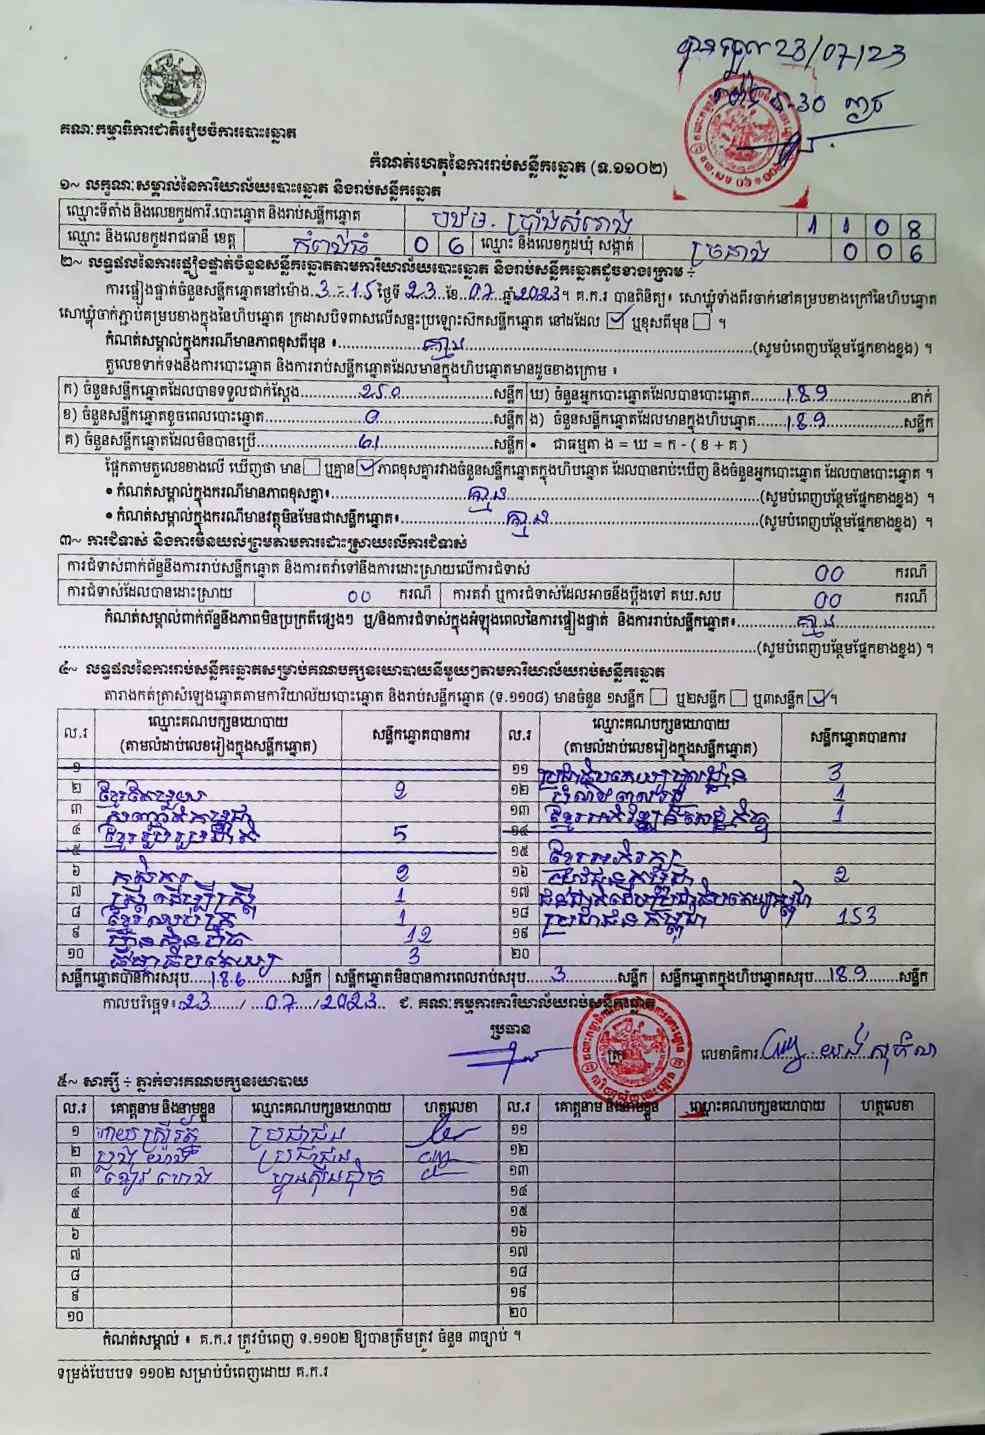 បានទទួល 23/07/23
គណៈកម្មាធិការជាតិរៀបចំការបោះឆ្នោត
កំណត់ហេតុនៃការរាប់សន្លឹកឆ្នោត (ទ.១១០២)
១~ លក្ខណៈសម្គាល់នៃការិយាល័យបោះឆ្នោត និងរាប់សន្លឹកឆ្នោត
ឈ្មោះទីតាំង និងលេខកូដការិ.បោះឆ្នោត និងរាប់សន្លឹកឆ្នោត 1 1 0 8
ឈ្មោះ និងលេខកូដរាជធានី ខេត្ត កំពង់ធំ 0 6 ឈ្មោះ និងលេខកូដឃុំ សង្កាត់ 0 0 6
២~ លទ្ធផលនៃការផ្ទៀងផ្ទាត់ចំនួនសន្លឹកឆ្នោតតាមការិយាល័យបោះឆ្នោត និងរាប់សន្លឹកឆ្នោតដូចខាងក្រោម ÷
ការផ្ទៀងផ្ទាត់ចំនួនសន្លឹកឆ្នោតនៅម៉ោង 3 - 15 ថ្ងៃទី 23 ខែ 07 ឆ្នាំ 2023។ គ.ក.រ បានពិនិត្យ៖ សោឃ្លុំទាំងពីរចាក់នៅគម្របខាងក្រៅនៃហិបឆ្នោត
សោឃ្លុំចាក់ភ្ជាប់គម្របខាងក្នុងនៃហិបឆ្នោត ក្រដាសបិទពាសលើសន្ទះប្រឡោះសឹកសន្លឹកឆ្នោត នៅដដែល ☑ ឬខុសពីមុន ☐ ។
កំណត់សម្គាល់ក្នុងករណីមានភាពខុសពីមុន ៖ គ្មាន (សូមបំពេញបន្ថែមផ្នែកខាងខ្នង) ។
តួលេខទាក់ទងនឹងការបោះឆ្នោត និងការរាប់សន្លឹកឆ្នោតដែលមានក្នុងហិបឆ្នោតមានដូចខាងក្រោម ៖
ក) ចំនួនសន្លឹកឆ្នោតដែលបានទទួលជាក់ស្ដែង 250 សន្លឹក ឃ) ចំនួនអ្នកបោះឆ្នោតដែលបានបោះឆ្នោត 189 នាក់
ខ) ចំនួនសន្លឹកឆ្នោតខូចពេលបោះឆ្នោត 0 សន្លឹក ង) ចំនួនសន្លឹកឆ្នោតដែលមានក្នុងហិបឆ្នោត 189 សន្លឹក
គ) ចំនួនសន្លឹកឆ្នោតដែលមិនបានប្រើ 61 សន្លឹក • ជាធម្មតា ង = ឃ = ក - ( ខ + គ )
ផ្អែកតាមតួលេខខាងលើ ឃើញថា មាន ☐ ឬគ្មាន ☑ ភាពខុសគ្នារវាងចំនួនសន្លឹកឆ្នោតក្នុងហិបឆ្នោត ដែលបានរាប់ឃើញ និងចំនួនអ្នកបោះឆ្នោត ដែលបានបោះឆ្នោត ។
• កំណត់សម្គាល់ក្នុងករណីមានភាពខុសគ្នា៖ គ្មាន (សូមបំពេញបន្ថែមផ្នែកខាងខ្នង) ។
• កំណត់សម្គាល់ក្នុងករណីមានវត្ថុមិនមែនជាសន្លឹកឆ្នោត៖ គ្មាន (សូមបំពេញបន្ថែមផ្នែកខាងខ្នង) ។
៣~ ការជំទាស់ និងការមិនយល់ព្រមតាមការដោះស្រាយលើការជំទាស់
ការជំទាស់ពាក់ព័ន្ធនឹងការរាប់សន្លឹកឆ្នោត និងការតវ៉ាទៅនឹងការដោះស្រាយលើការជំទាស់ 00 ករណី
ការជំទាស់ដែលបានដោះស្រាយ 00 ករណី ការតវ៉ា ឬការជំទាស់ដែលអាចនឹងប្ដឹងទៅ គឃ.សប 00 ករណី
កំណត់សម្គាល់ពាក់ព័ន្ធនឹងភាពមិនប្រក្រតីផ្សេងៗ ឬ/និងការជំទាស់ក្នុងអំឡុងពេលនៃការផ្ទៀងផ្ទាត់ និងការរាប់សន្លឹកឆ្នោត៖ គ្មាន
(សូមបំពេញបន្ថែមផ្នែកខាងខ្នង) ។
៤~ លទ្ធផលនៃការរាប់សន្លឹកឆ្នោតសម្រាប់គណបក្សនយោបាយនីមួយៗតាមការិយាល័យរាប់សន្លឹកឆ្នោត
តារាងកត់ត្រាសំឡេងឆ្នោតតាមការិយាល័យបោះឆ្នោត និងរាប់សន្លឹកឆ្នោត (ទ.១១០៨) មានចំនួន ១សន្លឹក ☐ ឬ២សន្លឹក ☐ ឬ៣សន្លឹក ☑។
ល.រ ឈ្មោះគណបក្សនយោបាយ (តាមលំដាប់លេខរៀងក្នុងសន្លឹកឆ្នោត) សន្លឹកឆ្នោតបានការ ល.រ ឈ្មោះគណបក្សនយោបាយ (តាមលំដាប់លេខរៀងក្នុងសន្លឹកឆ្នោត) សន្លឹកឆ្នោតបានការ
១ ១១ ប្រជាធិបតេយ្យមូលដ្ឋាន 3
២ ខ្មែរតែមួយ 2 ១២ 1
៣ ១៣ ខ្មែរអភិវឌ្ឍន៍សេដ្ឋកិច្ច 1
៤ ខ្មែររួបរួមជាតិ 5 ១៤
៥ ១៥ ខ្មែរអភិរក្ស
៦ កសិករ 2 ១៦ យុវជនកម្ពុជា 2
៧ ស្ត្រីដើម្បីស្ត្រី 1 ១៧
៨ ខ្មែរឈប់ក្រ 1 ១៨ ប្រជាជនកម្ពុជា 153
៩ ហ្វ៊ុនស៊ិនប៉ិច 12 ១៩
១០ ធម្មាធិបតេយ្យ 3 ២០
សន្លឹកឆ្នោតបានការសរុប 186 សន្លឹក សន្លឹកឆ្នោតមិនបានការពេលរាប់សរុប 3 សន្លឹក សន្លឹកឆ្នោតក្នុងហិបឆ្នោតសរុប 189 សន្លឹក
កាលបរិច្ឆេទ៖ 23 / 07 / 2023 ៩. គណៈកម្មការការិយាល័យរាប់សន្លឹកឆ្នោត
ប្រធាន
លេខាធិការ
៥~ សាក្សី ÷ ភ្នាក់ងារគណបក្សនយោបាយ
ល.រ គោត្តនាម និងនាមខ្លួន ឈ្មោះគណបក្សនយោបាយ ហត្ថលេខា ល.រ គោត្តនាម និងនាមខ្លួន ឈ្មោះគណបក្សនយោបាយ ហត្ថលេខា
១ ប្រជាជន ១១
២ ប្រជាជន ១២
៣ ហ្វ៊ុនស៊ិនប៉ិច ១៣
៤ ១៤
៥ ១៥
៦ ១៦
៧ ១៧
៨ ១៨
៩ ១៩
១០ ២០
កំណត់សម្គាល់ ៖ គ.ក.រ ត្រូវបំពេញ ទ.១១០២ ឱ្យបានត្រឹមត្រូវ ចំនួន ៣ច្បាប់ ។
ទម្រង់បែបបទ ១១០២ សម្រាប់បំពេញដោយ គ.ក.រ